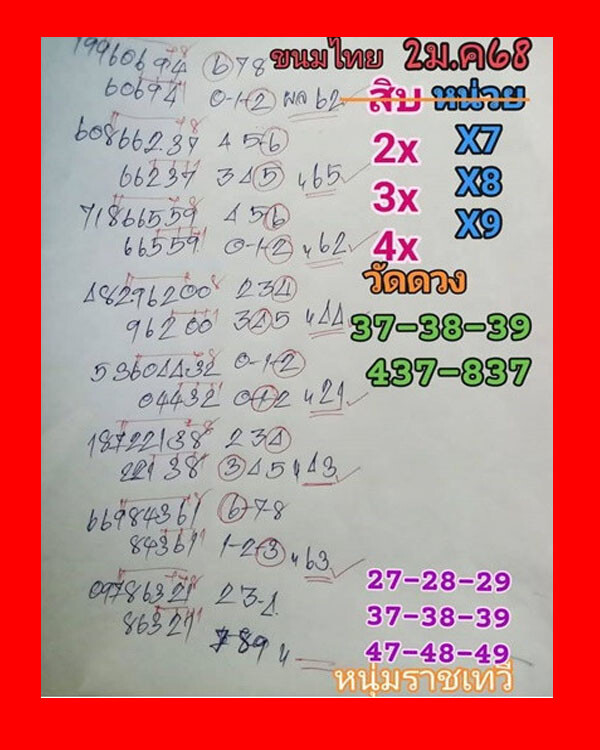 19960694 678 ขนมไทย 2ม.ค68
60694 0-1-2 ผล 62 สิบ หน่วย
60866237 456 2x x7
66237 345 " 65 3x x8
71866559 456 4x x9
66559 0-1-2 " 62
48296200 234 วัดดวง
96200 345 " 44 37-38-39
53604432 0-1-2 437-837
04432 0-12 " 21
18722138 234
22138 345 " 43
66984361 6-78
84361 1-2-3 " 63
09786321 23-4 27-28-29
86321 789 " 37-38-39
47-48-49
หนุ่มราชเทวี